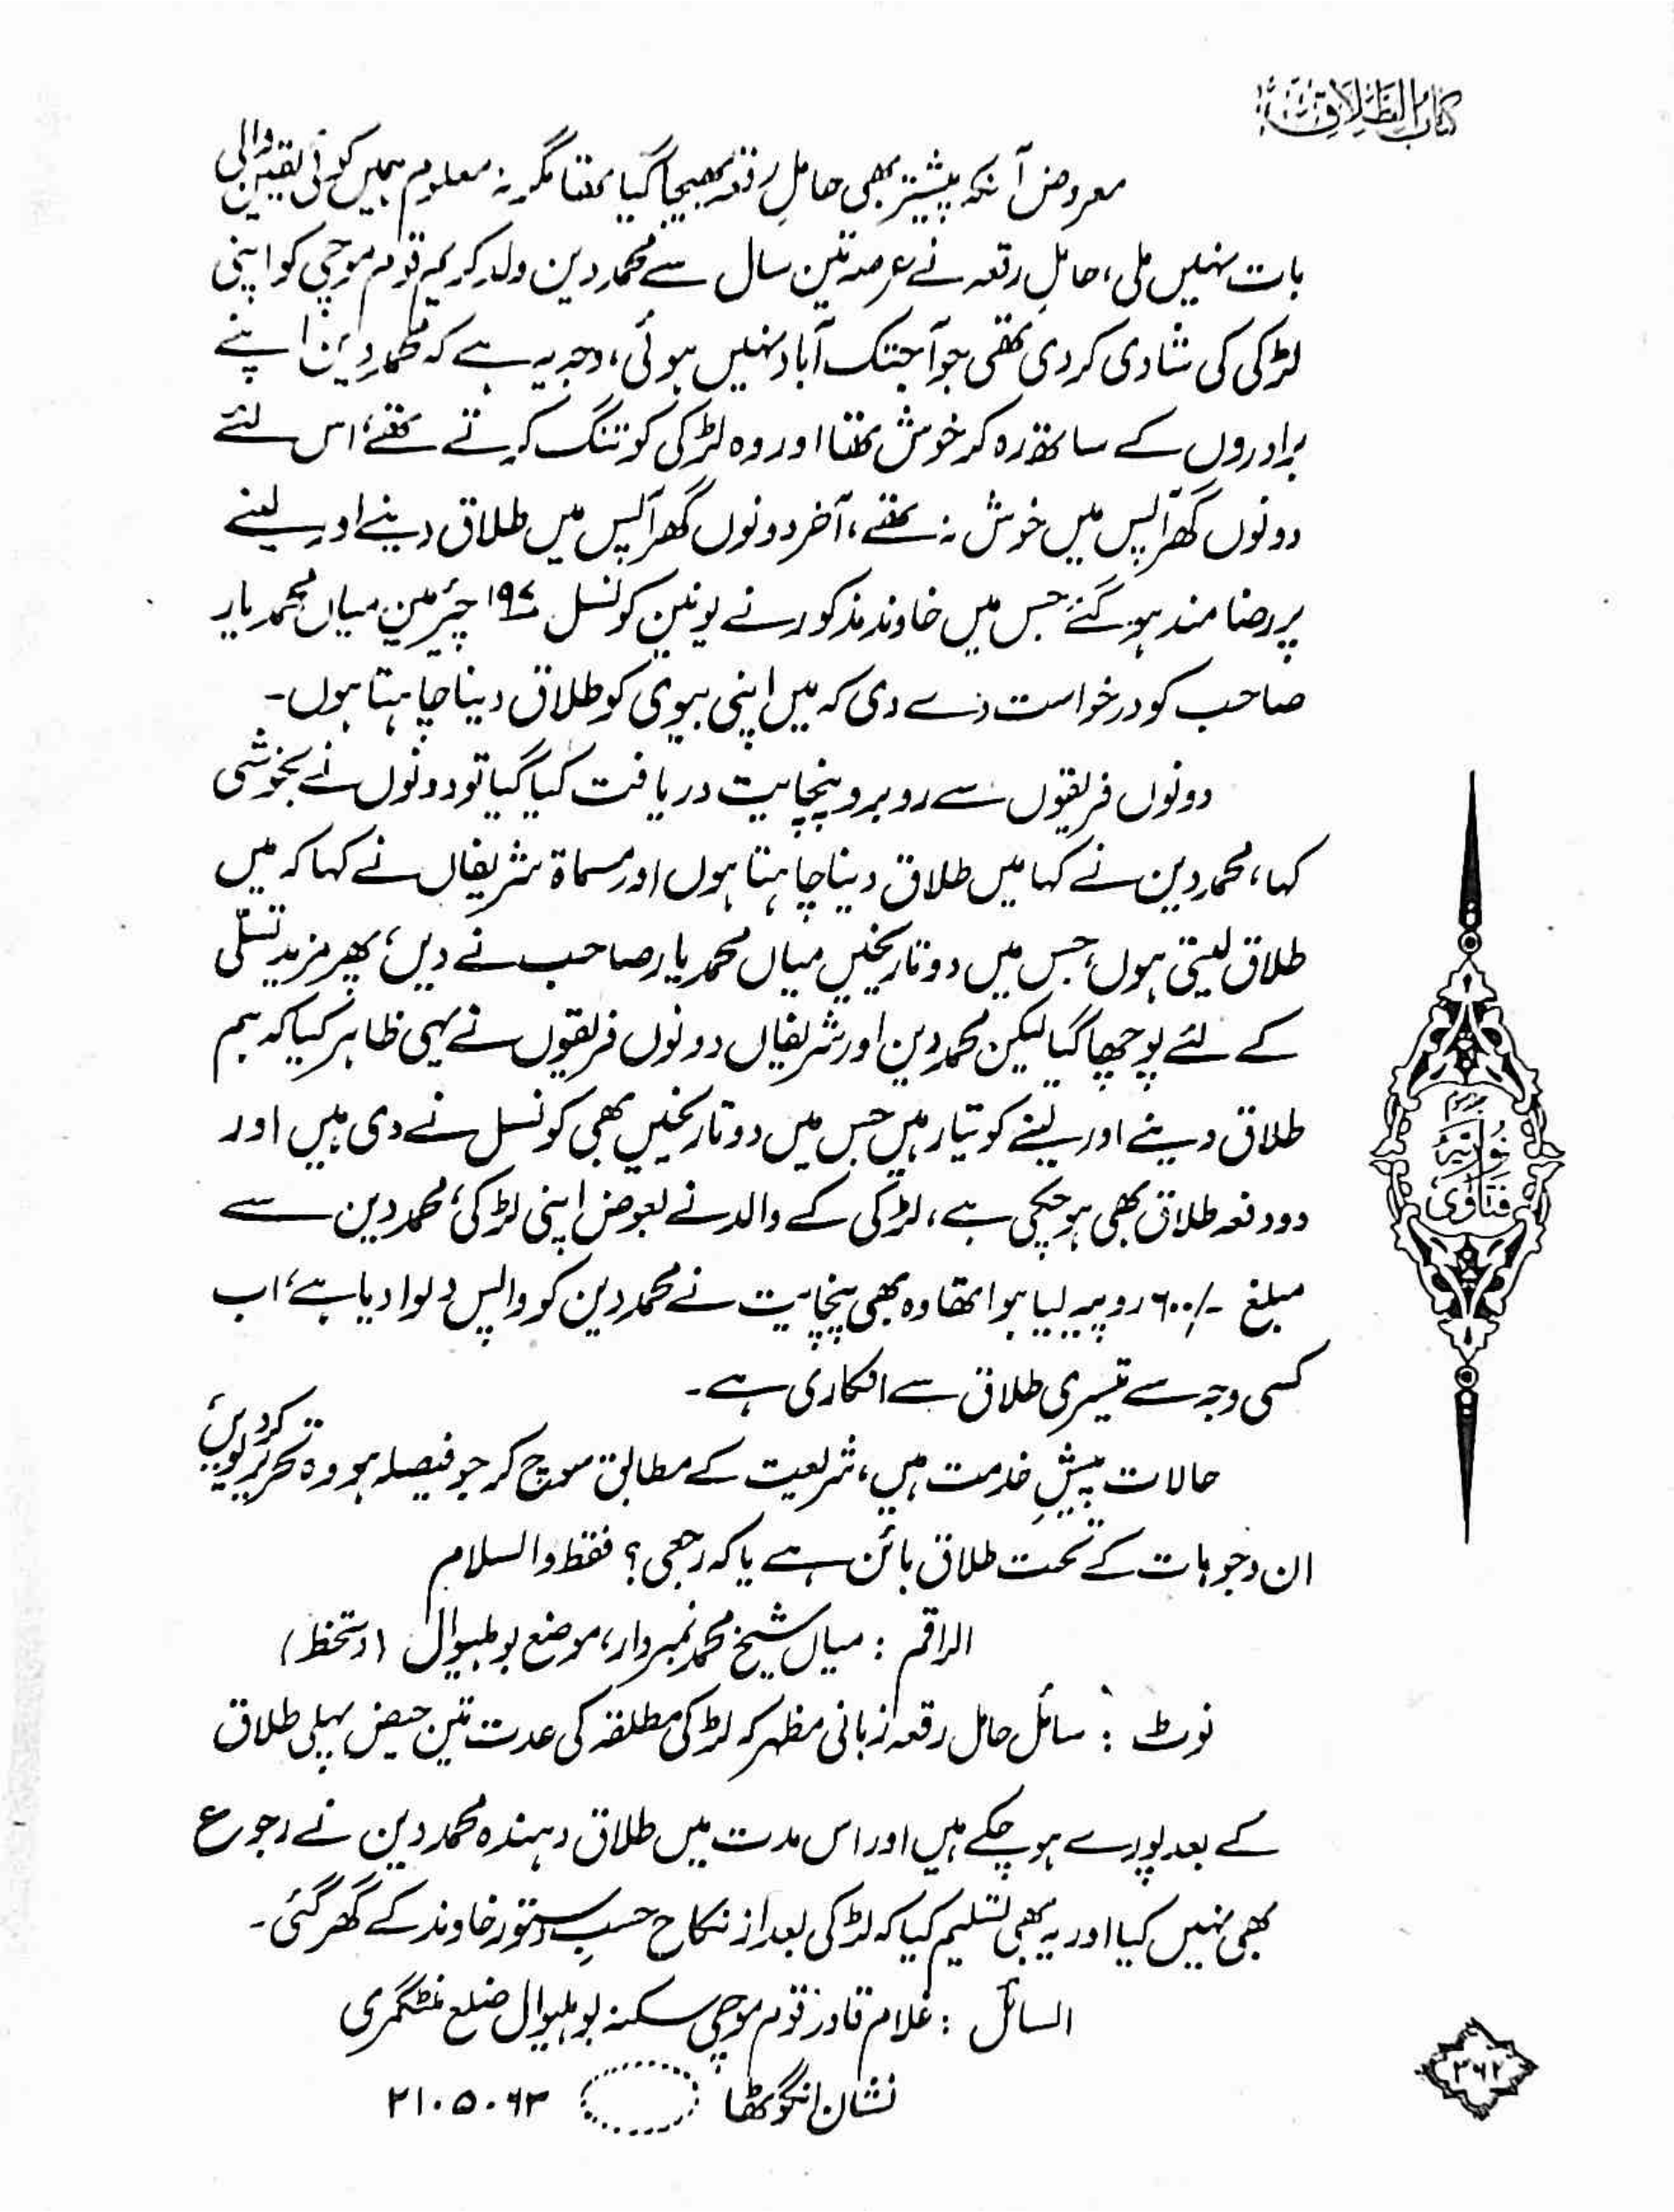 کتاب الطلاق
معروض آنکہ پیشتر بھی حاملِ رقعہ بھیجا گیا تھا مگر نہ معلوم ہمیں کوئی یقین والی
بات نہیں ملی، حاملِ رقعہ نے عرصہ تین سال سے محمد دین ولد کریم قوم موچی کو اپنی
لڑکی کی شادی کردی تھی جو آجتک آباد نہیں ہوئی، وجہ یہ ہے کہ محمد دین اپنے
برادروں کے ساتھ رہ کر خوش تھا اور وہ لڑکی کو تنگ کرتے تھے، اس لئے
دونوں گھر آپس میں خوش نہ تھے، آخر دونوں گھر آپس میں طلاق دینے اور لینے
پر رضامند ہو گئے جس میں خاوند مذکور نے یونین کونسل ۱۹۷ چیئرمین میاں محمد یار
صاحب کو درخواست دے دی کہ میں اپنی بیوی کو طلاق دینا چاہتا ہوں۔
دونوں فریقوں سے روبرو پنچایت دریافت کیا گیا تو دونوں نے بخوشی
کہا، محمد دین نے کہا میں طلاق دینا چاہتا ہوں اور مسماۃ شریفاں نے کہا کہ میں
طلاق لیتی ہوں، جس میں دو تاریخیں میاں محمد یار صاحب نے دیں، پھر مزید تسلّی
کے لئے پوچھا گیا لیکن محمد دین اور شریفاں دونوں فریقوں نے یہی ظاہر کیا کہ ہم
طلاق دینے اور لینے کو تیار ہیں جس میں دو تاریخیں بھی کونسل نے دی ہیں اور
دو دفعہ طلاق بھی ہو چکی ہے، لڑکی کے والد نے بعوض اپنی لڑکی، محمد دین سے
مبلغ ۶۰۰/- روپیہ لیا ہوا تھا وہ بھی پنچایت نے محمد دین کو واپس دلوا دیا ہے، اب
کسی وجہ سے تیسری طلاق سے انکاری ہے۔
حالات پیشِ خدمت ہیں، شریعت کے مطابق سوچ کر جو فیصلہ ہو وہ تحریر کردیں
ان وجوہات کے تحت طلاق بائن ہے یا کہ رجعی؟ فقط والسلام
الراقم : میاں شیخ محمد نمبردار، موضع بوہلیوال (دستخط)
نوٹ : سائل حامل رقعہ زبانی مظہر کہ لڑکی مطلقہ کی عدت تین حیض پہلی طلاق
کے بعد پورے ہو چکے ہیں اور اس مدت میں طلاق دہندہ محمد دین نے رجوع
بھی نہیں کیا اور یہ بھی تسلیم کیا کہ لڑکی بعد از نکاح حسبِ دستور خاوند کے گھر گئی۔
السائل : غلام قادر قوم موچی سکنہ بوہلیوال ضلع منٹگمری
نشان انگوٹھا ۲۱.۵.۶۳
فتاوٰی نوریہ
۳۶۲